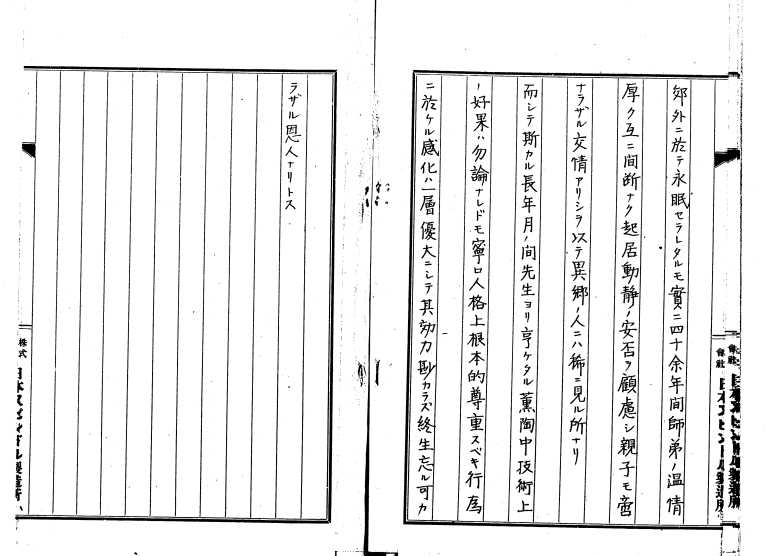 郊外ニ於テ永眠セラレタルモ實ニ四十余年間師弟ノ温情
厚ク互ニ間断ナク起居動静ノ安否ヲ顧慮シ親子モ啻
ナラザル交情アリシヲ以テ異郷ノ人ニハ稀ニ見ル所ナリ
而シテ斯カル長年月ノ間先生ヨリ享ケタル薫陶中技術上
ノ好果ハ勿論ナレドモ寧ロ人格上根本的尊重スベキ行為
ニ於ケル感化ハ一層優大ニシテ其効力尠カラズ終生忘ル可カ
ラザル恩人ナリトス
株式
會社
日本スピンドル製造所